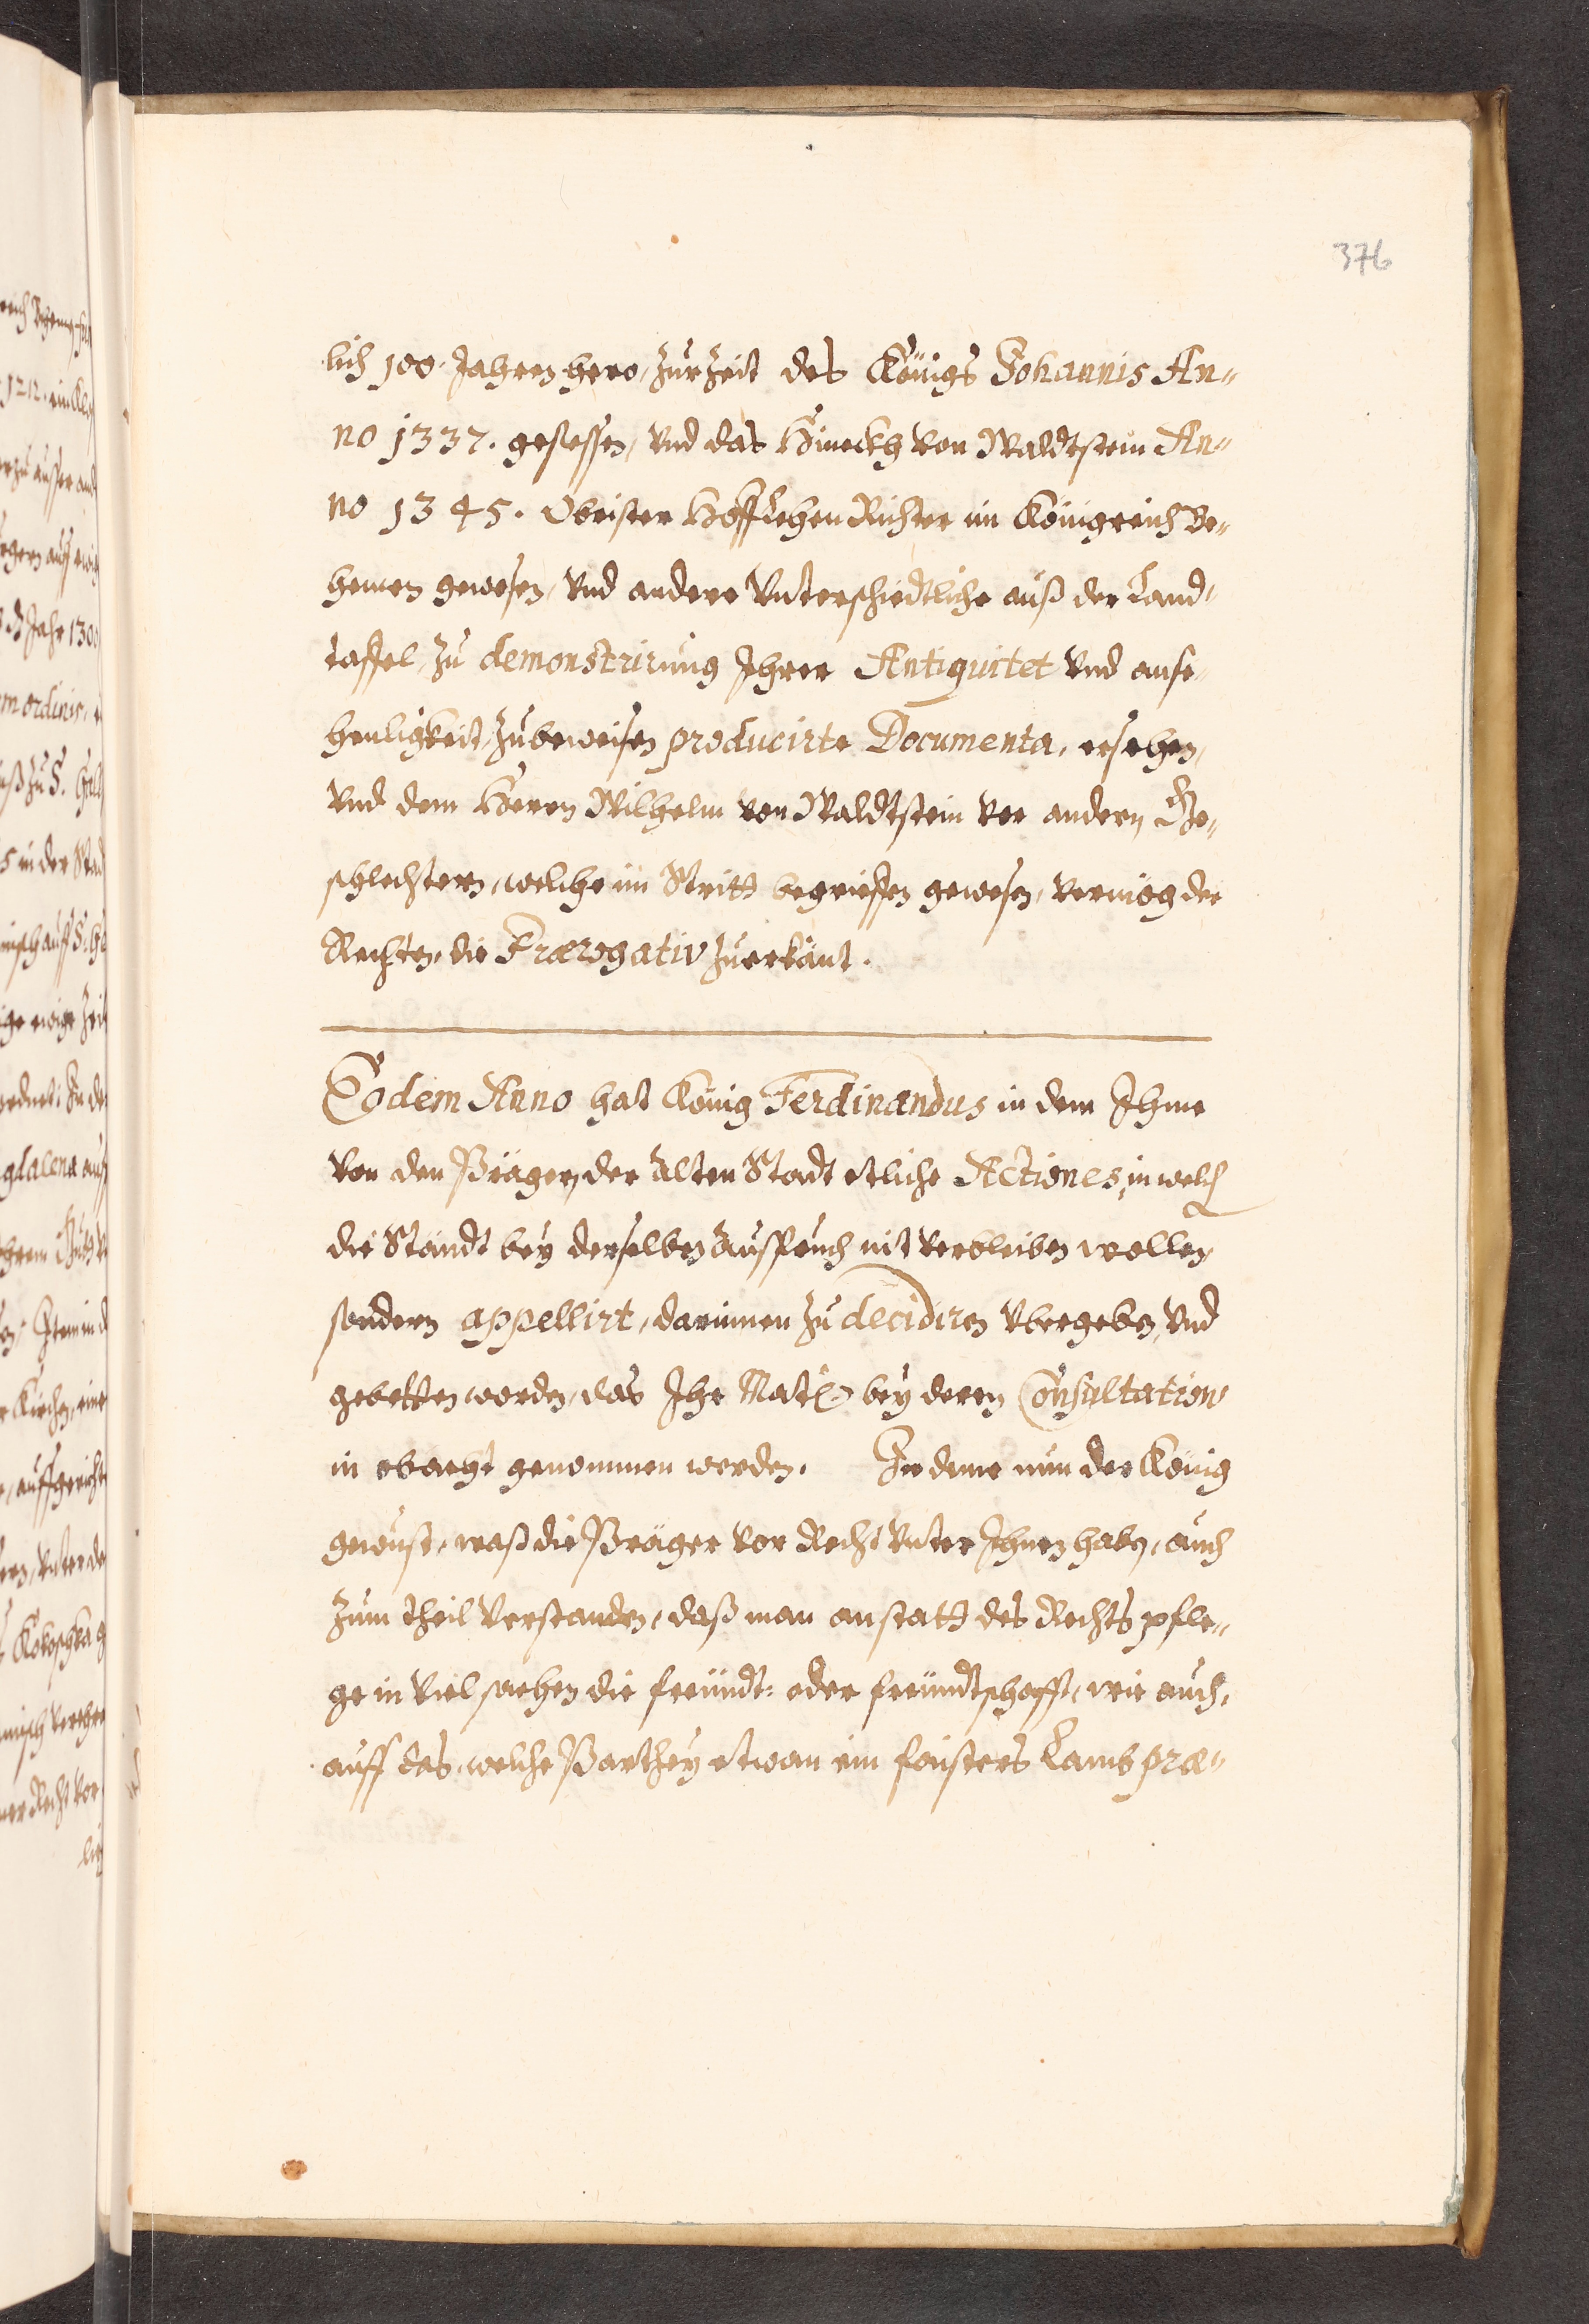 376
lich 100. Jahren hero, zur Zeit des Königs Johannis An„
no 1337. gesessen, vnd das Hineckh von Waldtstein An„
no 1345. Obrister HoffLehen Richter im Königreich Be„
hemen gewesen, vnd andere Vnterschiedtliche auß der Land„
taffel, zu demonstrirung Ihrer Antiquitet vnd anse„
henligkeit, zubeweisen producirte Documenta, ersehen,
vnd dem Herren Wilhelm von Waldtstein vor andern Ge„
schlechtern, welche im Stritt begrieffen gewesen, vermög der
Rechten, die Prærogativ zuerkänt.
Eodem Anno hat König Ferdinandus in dem Ihme
von den Prägern der Alten Stadt etliche Actiones, in welch
die Ständt bey derselben Ausspruch nit verbleiben wollen,
sondern appellirt, darinnen zu decidiren Vbergeben, vnd
gebetten worden, das Ihr Matt: bey deren Consultation
in obacht genommen werden. In deme nun der König
gewust, waß die Präger vor Recht vnter Ihnen haben, auch
zum theil Verstanden, daß man anstatt des Rechts pfle„
ge in viel sachen die freündt: oder freündtschafft, wie auch,
auff das, welche Parthey etwan ein faisters Lamb præ„